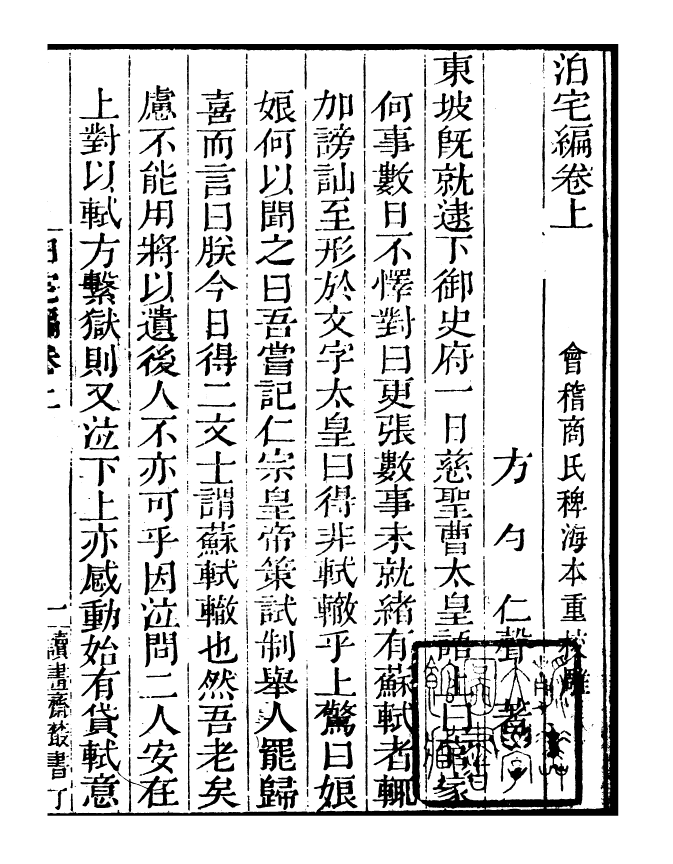 泊宅編卷上
會稽商氏稗海本重校雕
方勺仁聲著
東坡旣就逮下御史府一日慈聖曹太皇語上曰官家
何事數日不懌對曰更張數事未就緒有蘇軾者輒
加謗訕至形於文字太皇曰得非軾轍乎上驚曰娘
娘何以聞之曰吾嘗記仁宗皇帝策試制舉人罷歸
喜而言曰朕今日得二文士謂蘇軾轍也然吾老矣
慮不能用將以遺後人不亦可乎因泣問二人安在
上對以軾方繫獄則又泣下上亦感動始有貸軾意
泊宅編卷上
一
讀書齋叢書丁